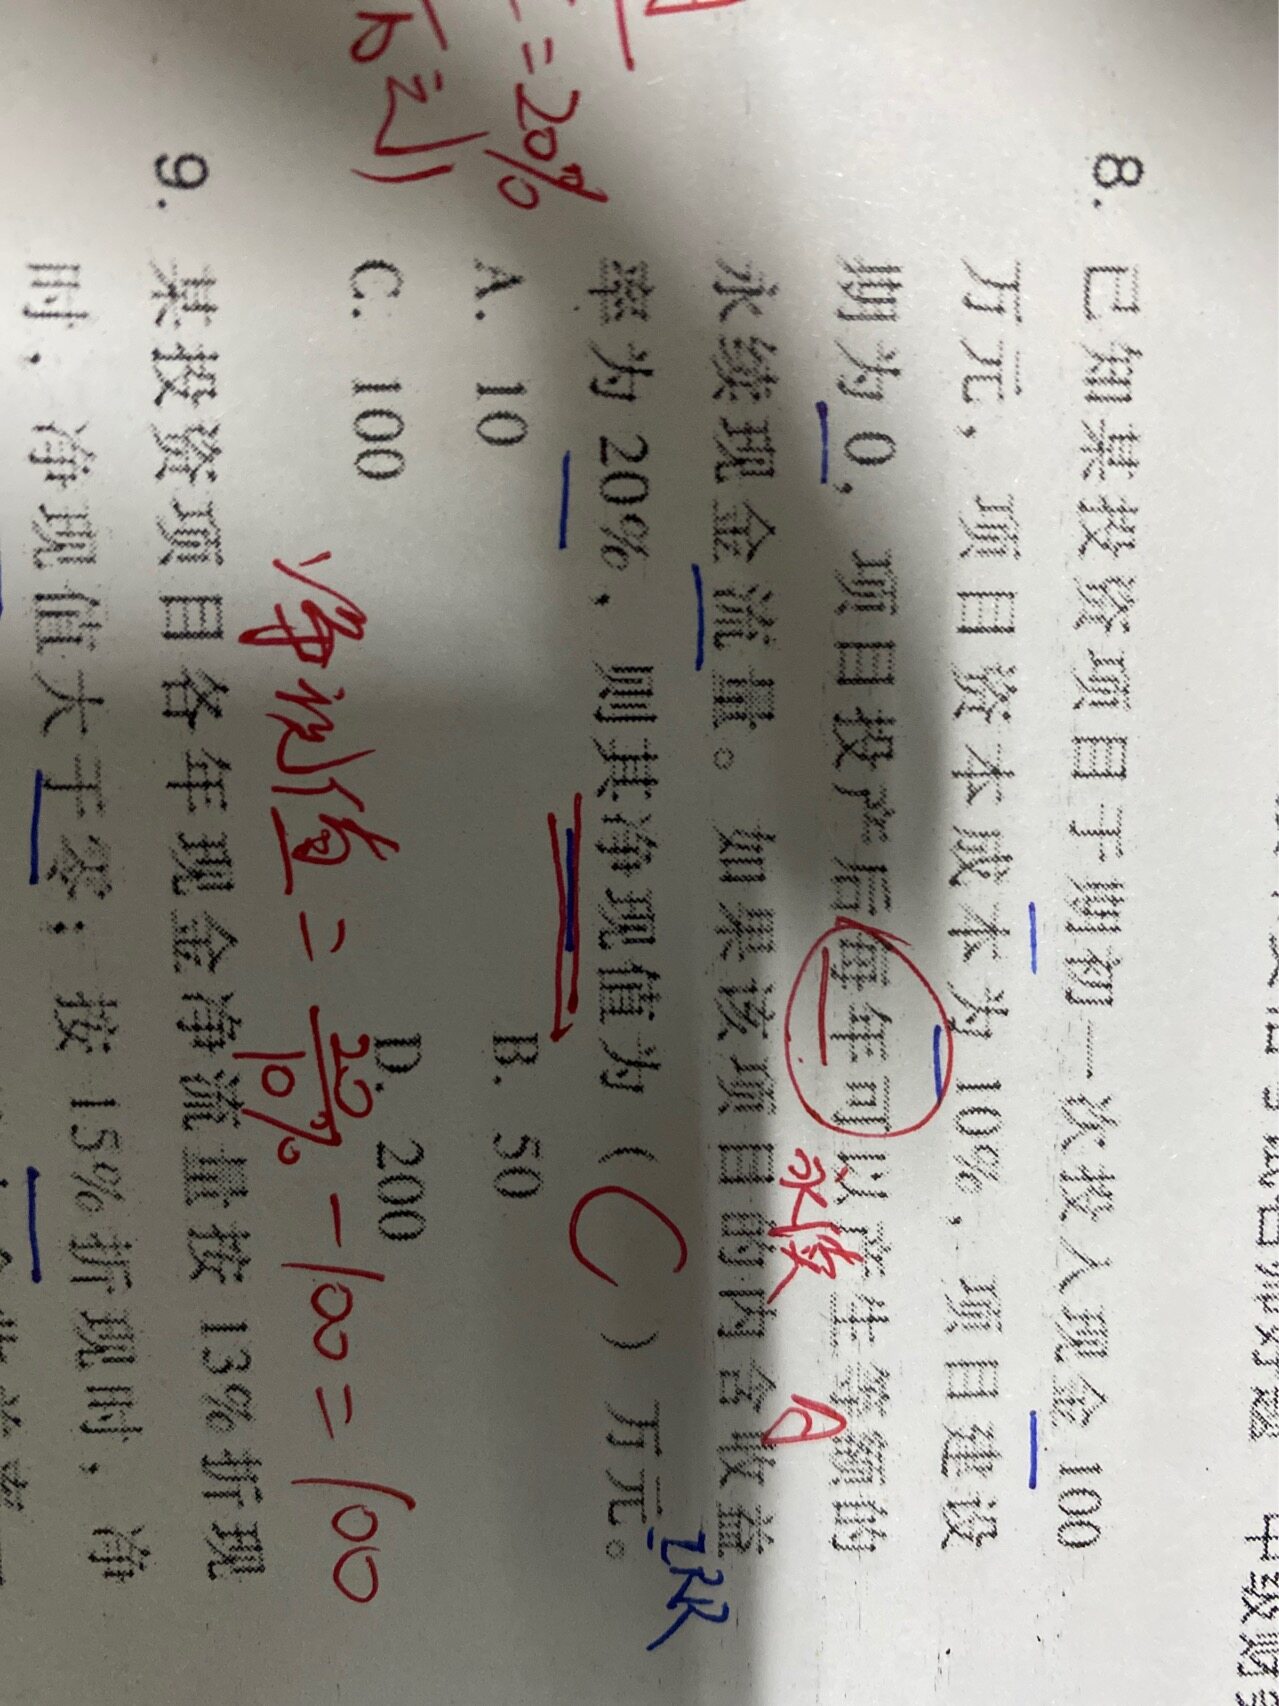 8. 已知某投资项目于期初一次投入现金 100
万元，项目资本成本为 10%，项目建设
期为 0，项目投产后每年可以产生等额的
永续
A
永续现金流量。如果该项目的内含收益
率为 20%，则其净现值为（ C ）万元。
A. 10 B. 50
C. 100 D. 200
净现值 = 20/10% - 100 = 100
= 20%
9. 某投资项目各年现金净流量按 13%折现
时，净现值大于零；按 15%折现时，净